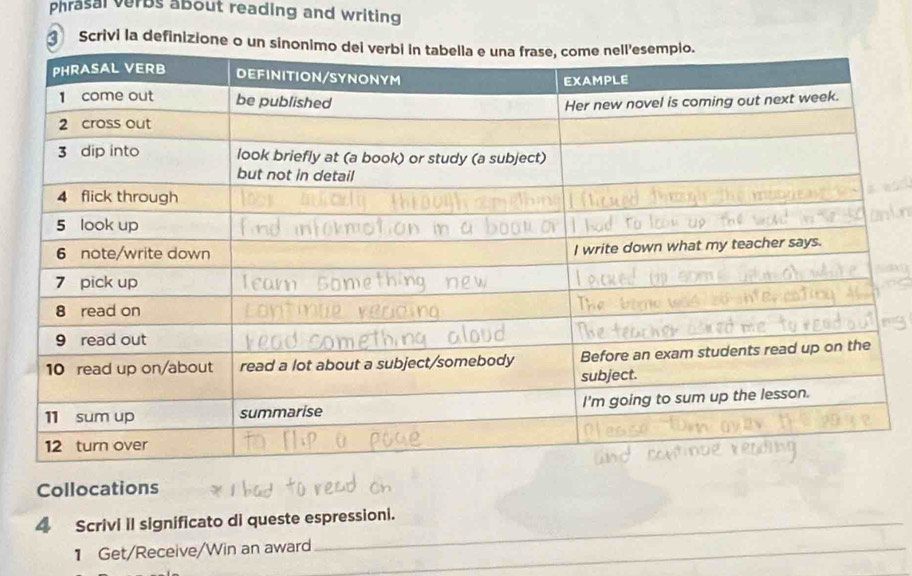 Phrasal verbs about reading and writing
3 Scrivi la definizione o un sinonimo dei verbi in tabella e una frase, come nell'esempio.
PHRASAL VERB DEFINITION/SYNONYM EXAMPLE
1 come out be published Her new novel is coming out next week.
2 cross out
3 dip into look briefly at (a book) or study (a subject)
but not in detail
4 flick through look briefly through something I flicked through the magazine
5 look up find information in a book or I had to look up the word in the
6 note/write down I write down what my teacher says.
7 pick up learn something new I picked up some
8 read on continue reading The book was so interesting that
9 read out read something aloud The teacher asked me to read out
10 read up on/about read a lot about a subject/somebody Before an exam students read up on the
subject.
11 sum up summarise I'm going to sum up the lesson.
12 turn over to flip a page please turn over the page
and continue reading
Collocations * I had to read on
4 Scrivi il significato di queste espressioni.
1 Get/Receive/Win an award